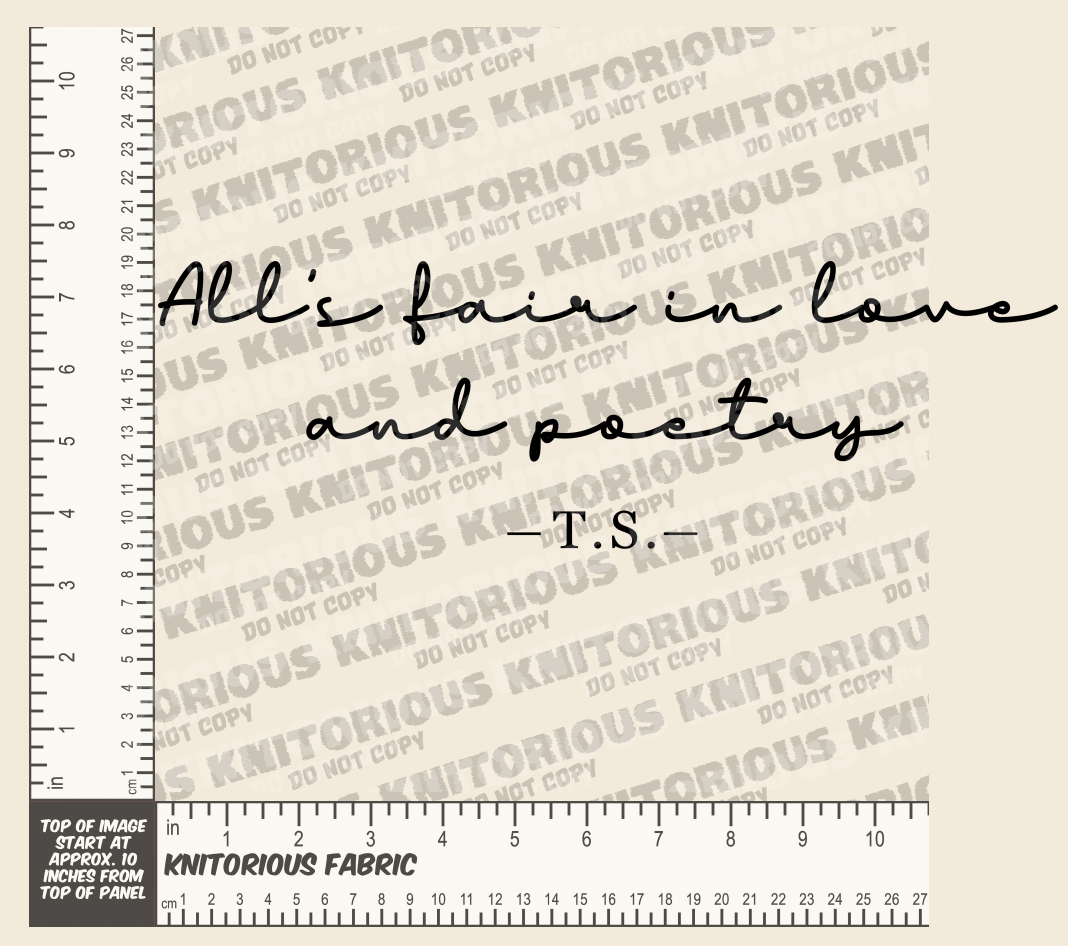 All's fair in love
and poetry
—T.S.—
KNITORIOUS
DO NOT COPY
in
1 2 3 4 5 6 7 8 9 10
cm 1 2 3 4 5 6 7 8 9 10 11 12 13 14 15 16 17 18 19 20 21 22 23 24 25 26 27
TOP OF IMAGE
START AT
APPROX. 10
INCHES FROM
TOP OF PANEL
in 1 2 3 4 5 6 7 8 9 10
KNITORIOUS FABRIC
cm 1 2 3 4 5 6 7 8 9 10 11 12 13 14 15 16 17 18 19 20 21 22 23 24 25 26 27